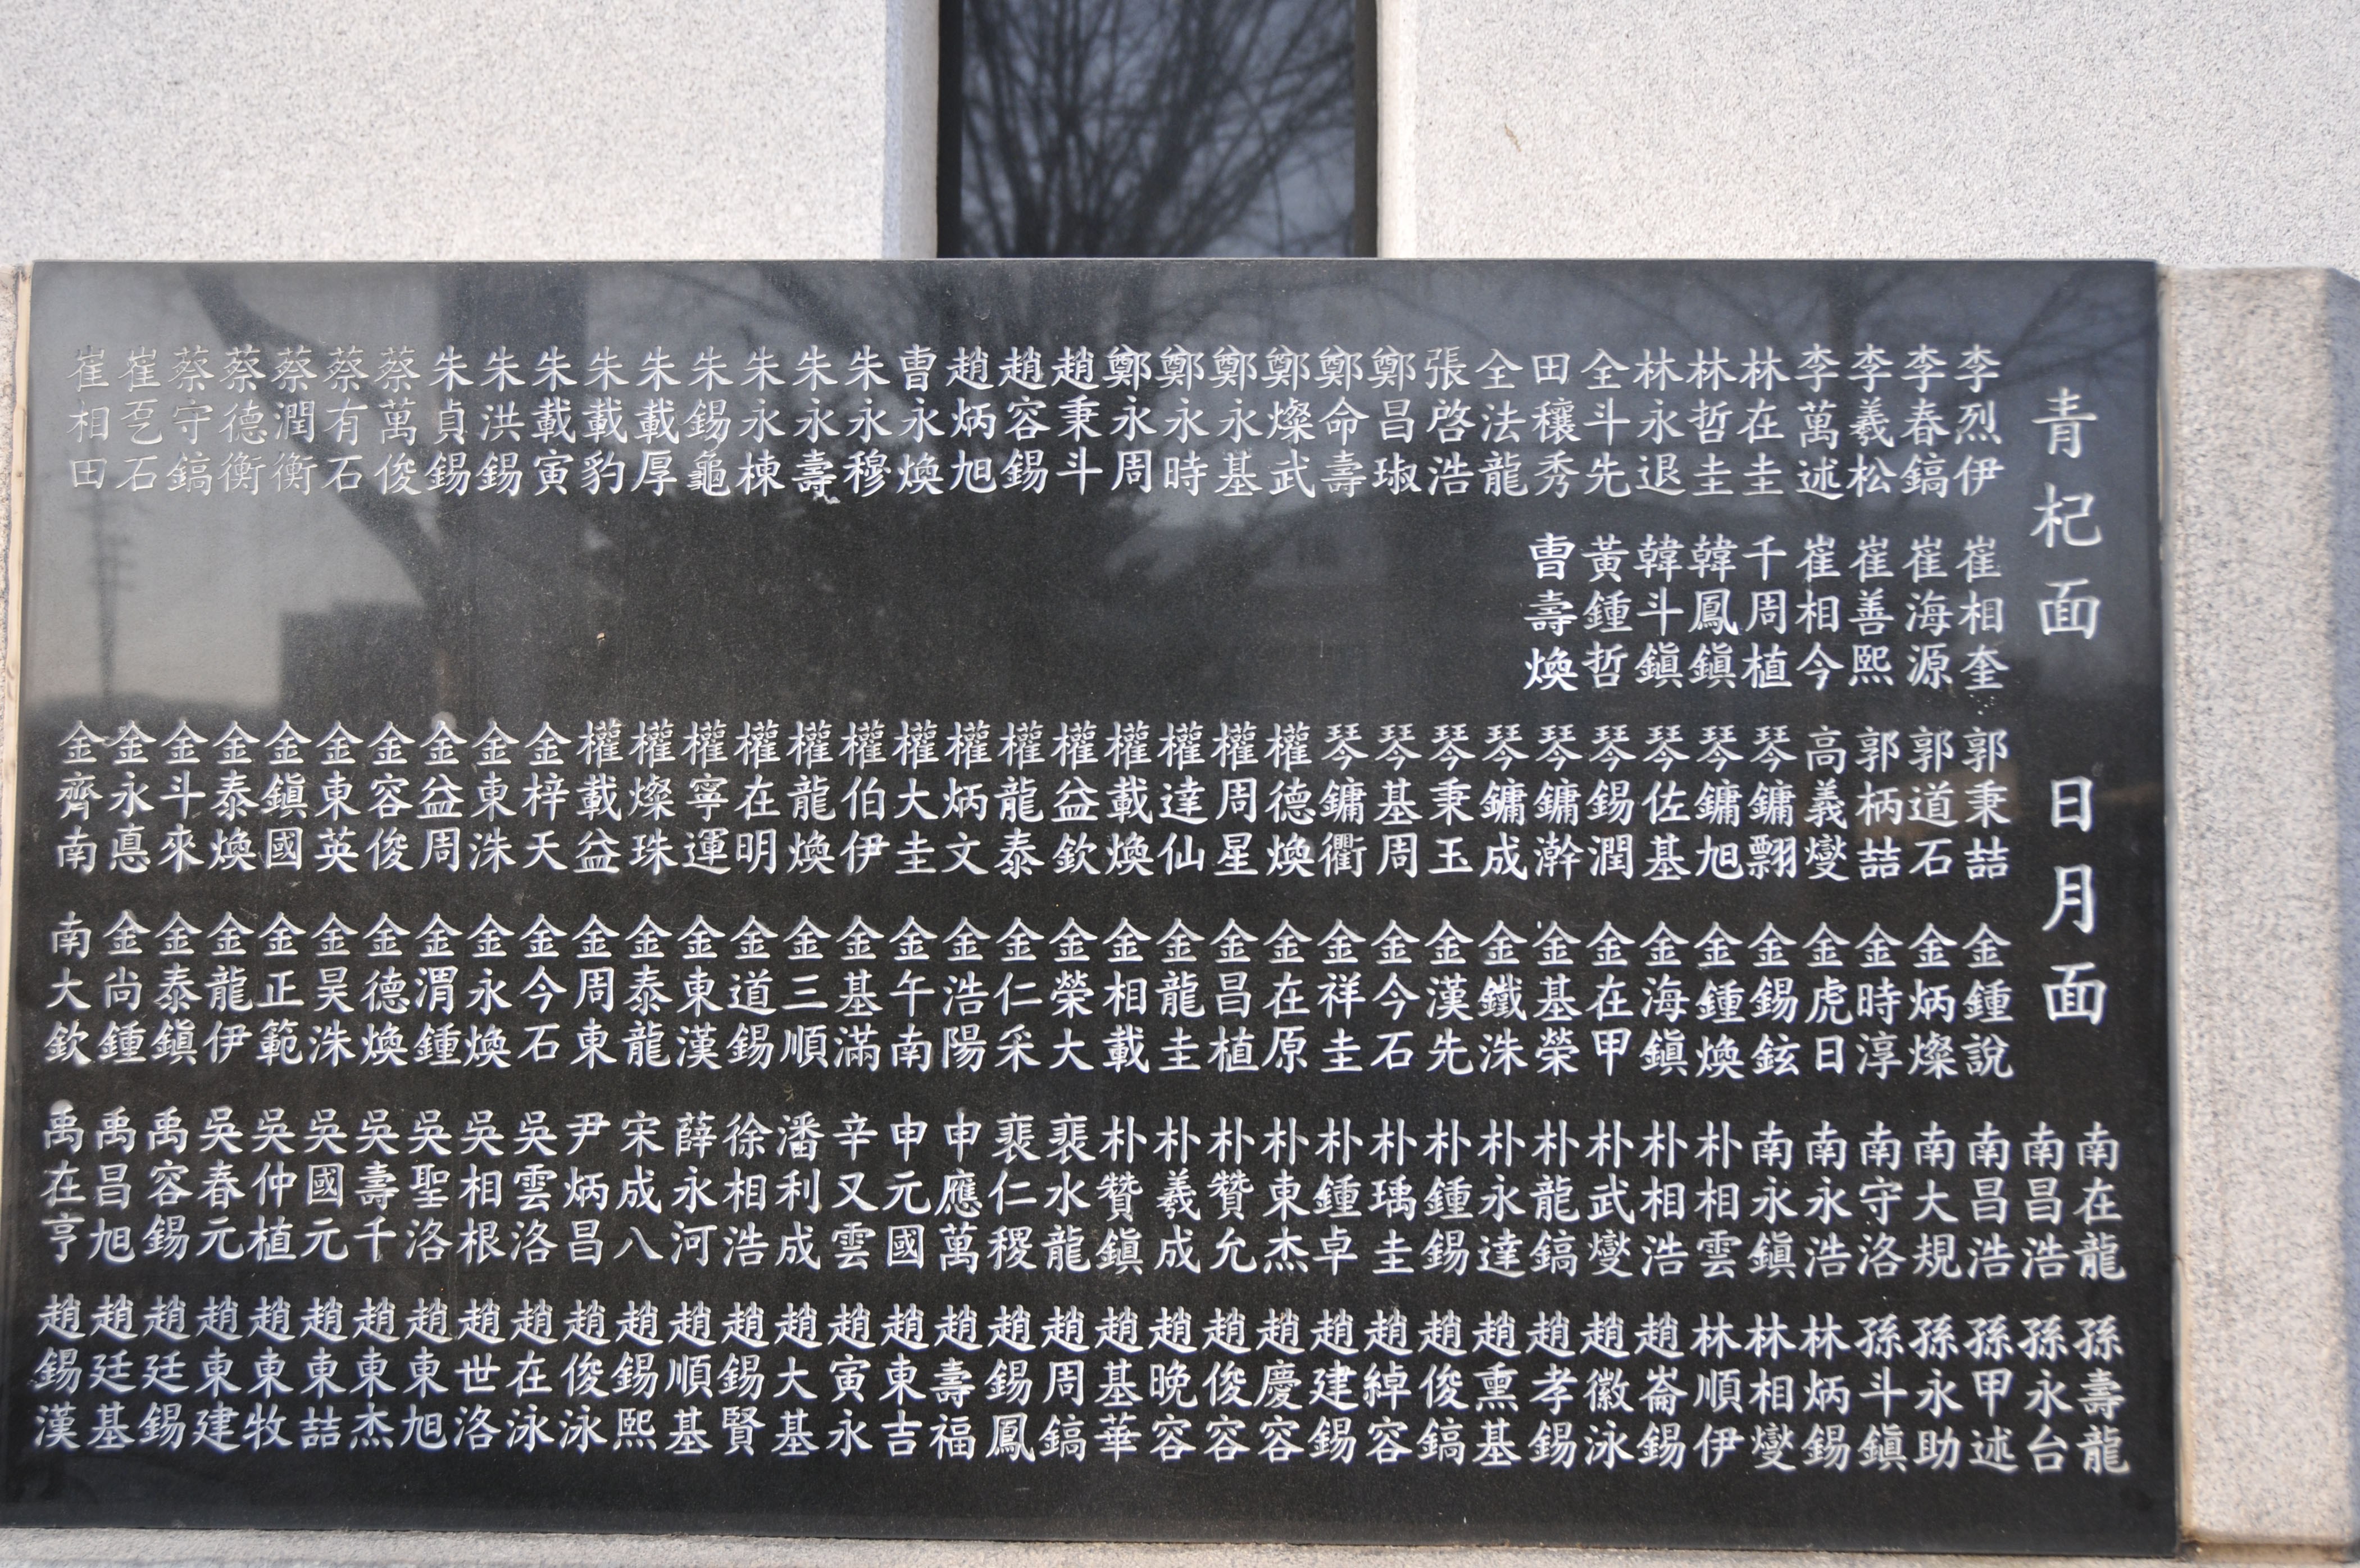 青杞面
李烈伊
李春鎬
李羲松
李萬述
林在圭
林哲圭
林永退
全斗先
田穰秀
全法龍
張啓浩
鄭昌琡
鄭命壽
鄭燦武
鄭永基
鄭永時
鄭永周
趙秉斗
趙容錫
趙炳旭
曺永煥
朱永穆
朱永壽
朱永棟
朱錫龜
朱載厚
朱載豹
朱載寅
朱洪錫
朱貞錫
蔡萬俊
蔡有石
蔡潤衡
蔡德衡
蔡守鎬
崔乭石
崔相田
崔相奎
崔海源
崔善熙
崔相今
千周植
韓鳳鎭
韓斗鎭
黃鍾哲
曺壽煥
日月面
郭秉喆
郭道石
郭柄喆
高義燮
琴鏞翲
琴鏞旭
琴佐基
琴錫潤
琴鏞澣
琴鏞成
琴秉玉
琴基周
琴鏞衢
權德煥
權周星
權達仙
權載煥
權益欽
權龍泰
權炳文
權大圭
權伯伊
權龍煥
權在明
權寧運
權燦珠
權載益
金梓天
金東洙
金益周
金容俊
金東英
金鎭國
金泰煥
金斗來
金永悳
金齊南
金鍾說
金炳燦
金時淳
金虎日
金錫鉉
金鍾煥
金海鎭
金在甲
金基榮
金鐵洙
金漢先
金今石
金祥圭
金在原
金昌植
金龍圭
金相載
金榮大
金仁采
金浩陽
金午南
金基滿
金三順
金道錫
金東漢
金泰龍
金周東
金今石
金永煥
金渭鍾
金德煥
金昊洙
金正範
金龍伊
金泰鎭
金尚鍾
南大欽
南在龍
南昌浩
南昌浩
南大規
南守洛
南永浩
南永鎭
朴相雲
朴相浩
朴武燮
朴龍鎬
朴永達
朴鍾錫
朴瑀圭
朴鍾卓
朴東杰
朴贊允
朴羲成
朴贊鎭
裵水龍
裵仁稷
申應萬
申元國
辛又雲
潘利成
徐相浩
薛永河
宋成八
尹炳昌
吳雲洛
吳相根
吳聖洛
吳壽千
吳國元
吳仲植
吳春元
禹容錫
禹昌旭
禹在亨
孫壽龍
孫永台
孫甲述
孫永助
孫斗鎭
林炳錫
林相燮
林順伊
趙崙錫
趙徽泳
趙孝錫
趙熏基
趙俊鎬
趙綽容
趙建錫
趙慶容
趙俊容
趙晩容
趙基華
趙周鎬
趙錫鳳
趙壽福
趙東吉
趙寅永
趙大基
趙錫賢
趙順基
趙錫熙
趙俊泳
趙在泳
趙世洛
趙東旭
趙東杰
趙東喆
趙東牧
趙東建
趙廷錫
趙廷基
趙錫漢